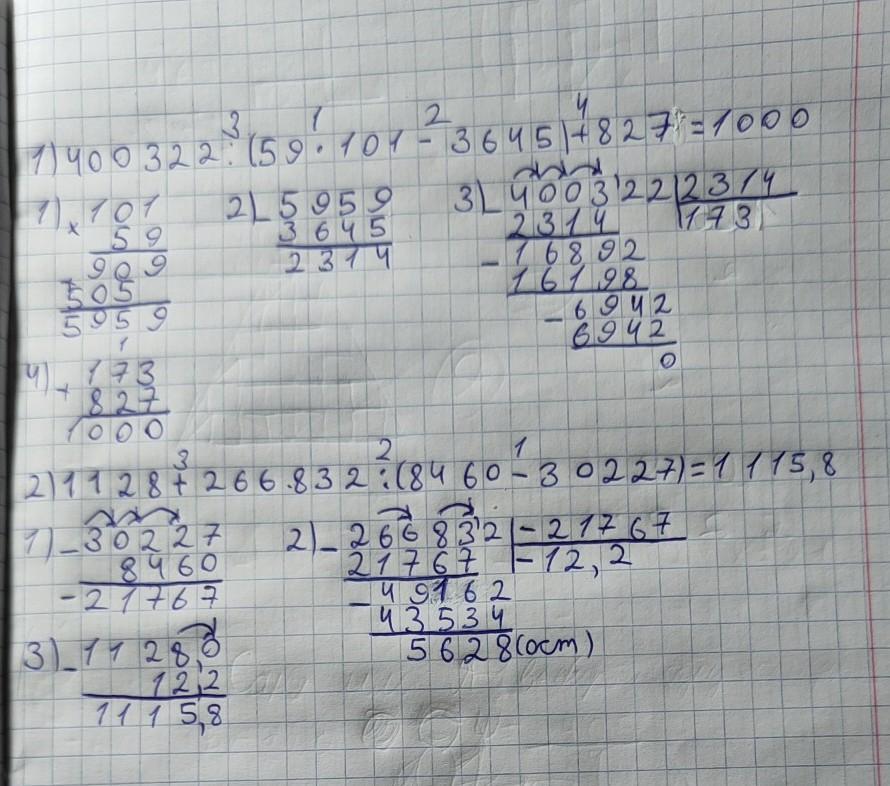 1) 400322 : (59 · 101 - 3645) + 827 = 1000
3 1 2 4
1) × 101
59
909
505
5959
2) - 5959
3645
2314
3) - 400322 | 2314
2314 | 173
- 16892
16198
- 6942
6942
0
4) + 173
1
827
1000
2) 1128 + 266832 : (8460 - 30227) = 1115,8
3 2 1
1) - 30227
8460
-21767
2) - 266832 | -21767
21767 | -12,2
- 49162
43534
5628 (ост)
3) - 1128,0
12,2
1115,8